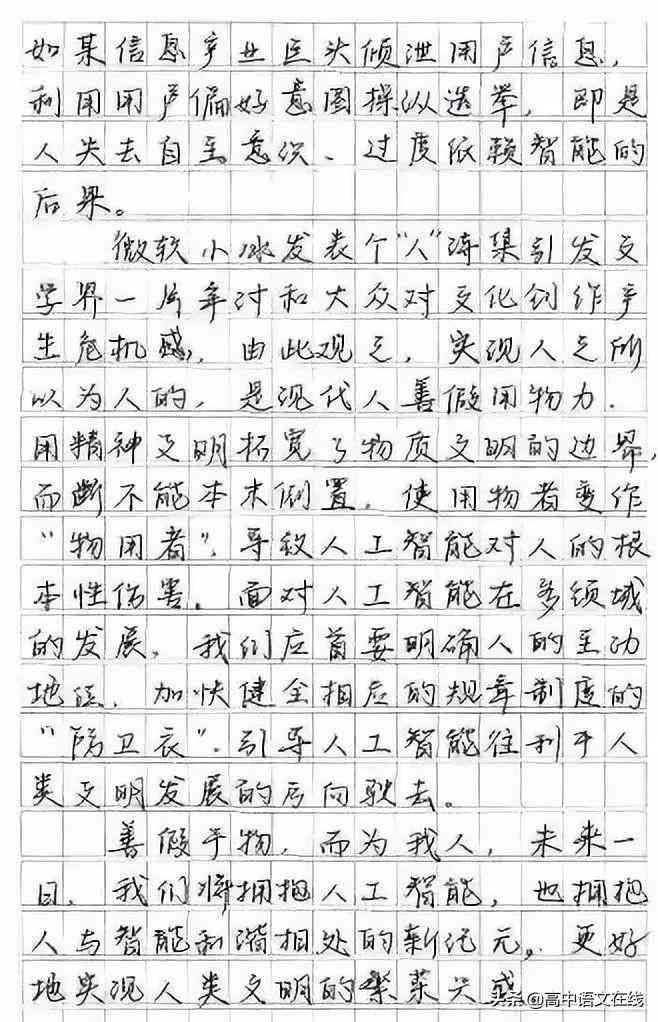 如某信息产业巨头倾泄用户信息，
利用用户偏好意图操纵选举，即是
人失去自主意识、过度依赖智能的
后果。
微软小冰发表个“人”诗集引发文
学界一片争讨和大众对文化创作产
生危机感，由此观之，实现人之所
以为人的，是现代人善假用物力．
用精神文明拓宽了物质文明的边界，
而断不能本末倒置，使用物者变作
“物用者”，导致人工智能对人的根
本性伤害。面对人工智能在多领域
的发展，我们应首要明确人的主动
地位，加快健全相应的规章制度的
“防卫衣”，引导人工智能往利于人
类文明发展的方向驶去。
善假于物，而为我人，未来一
日，我们将拥抱人工智能，也拥抱
人与智能和谐相处的新纪元，更好
地实现人类文明的繁荣兴盛
头条@高中语文在线